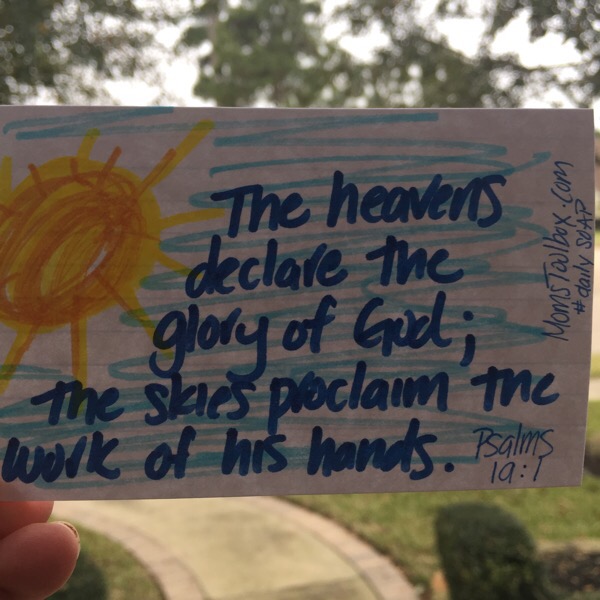 The heavens
declare the
glory of God;
the skies proclaim the
work of his hands.
Psalms
19:1
MomsToolbox.com
#daily SOAP